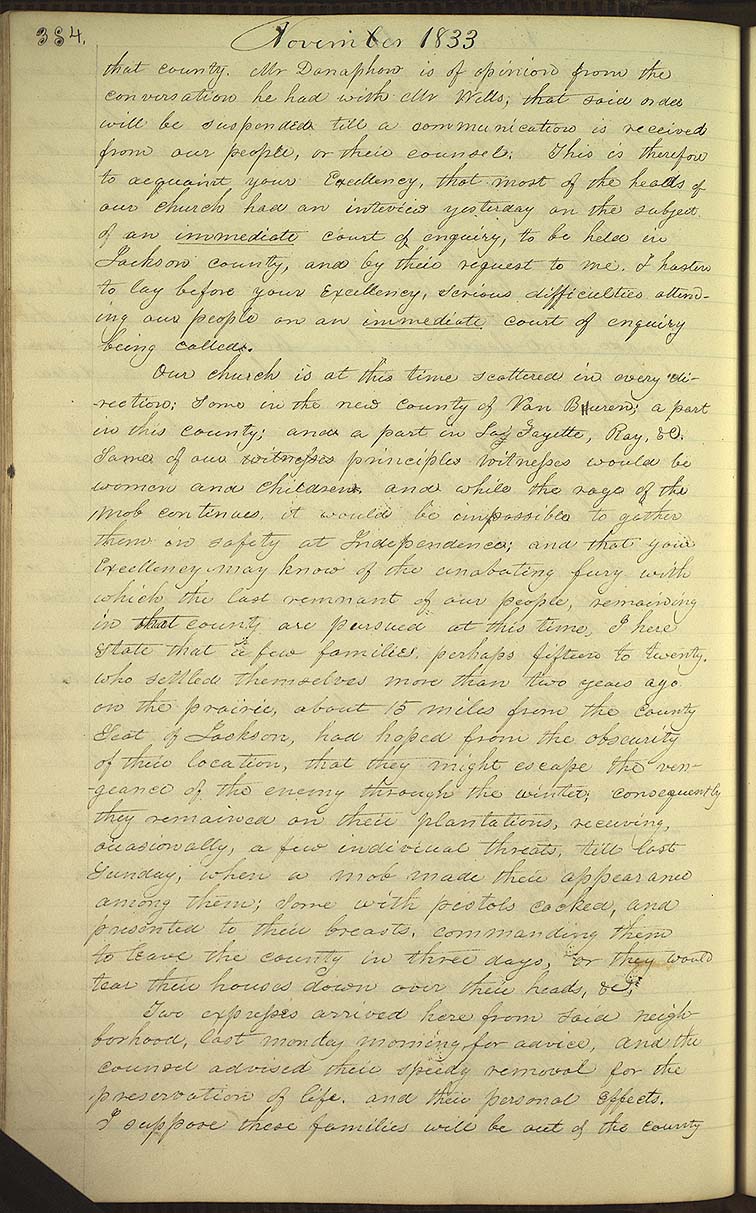 384.
November 1833
that county. Mr Donaphon is of opinion from the
conversation he had with Mr Wells, that said order
will be suspended till a communication is received
from our people, or their counsel. This is therefore
to acquaint your Excellency, that most of the heads of
our church had an inteview yesterday on the subject
of an immediate court of enquiry, to be held in
Jackson county, and by their request to me. I hasten
to lay before your Excellency, serious difficulties attend-
ing our people on an immediate court of enquiry
being called.
Our church is at this time scattered in every di-
rection: Some in the new county of Van Buren; a part
in this county; and a part in La Fayette, Ray, &c.
Some of our witnesses principle witnesses would be
women and children and while the rage of the
mob continues, it would be impossible to gather
them in safety at Independence; and that your
Excellency may know of the unabating fury with
which the last remnant of our people, remaining
in that county are pursued at this time, I here
state that a few families, perhaps fifteen to twenty.
who settled themselves more than two years ago
on the prairie, about 15 miles from the county
Seat of Jackson, had hoped from the obscurity
of their location, that they might escape the ven-
-geance of the enemy through the winter; consequently
they remained on their plantations, receiving,
occasionally, a few individual threats, till last
Sunday; when a mob made their appearance
among them; some with pistols cocked, and
presented to their breasts, commanding them
to leave the county in three days, or they would
tear their houses down over their heads, &c.
Two expresses arrived here from said neigh-
borhood, last monday morning for advice, and the
counsel advised their speedy removal for the
preservation of life. and their personal effects.
I suppose these families will be out of the county